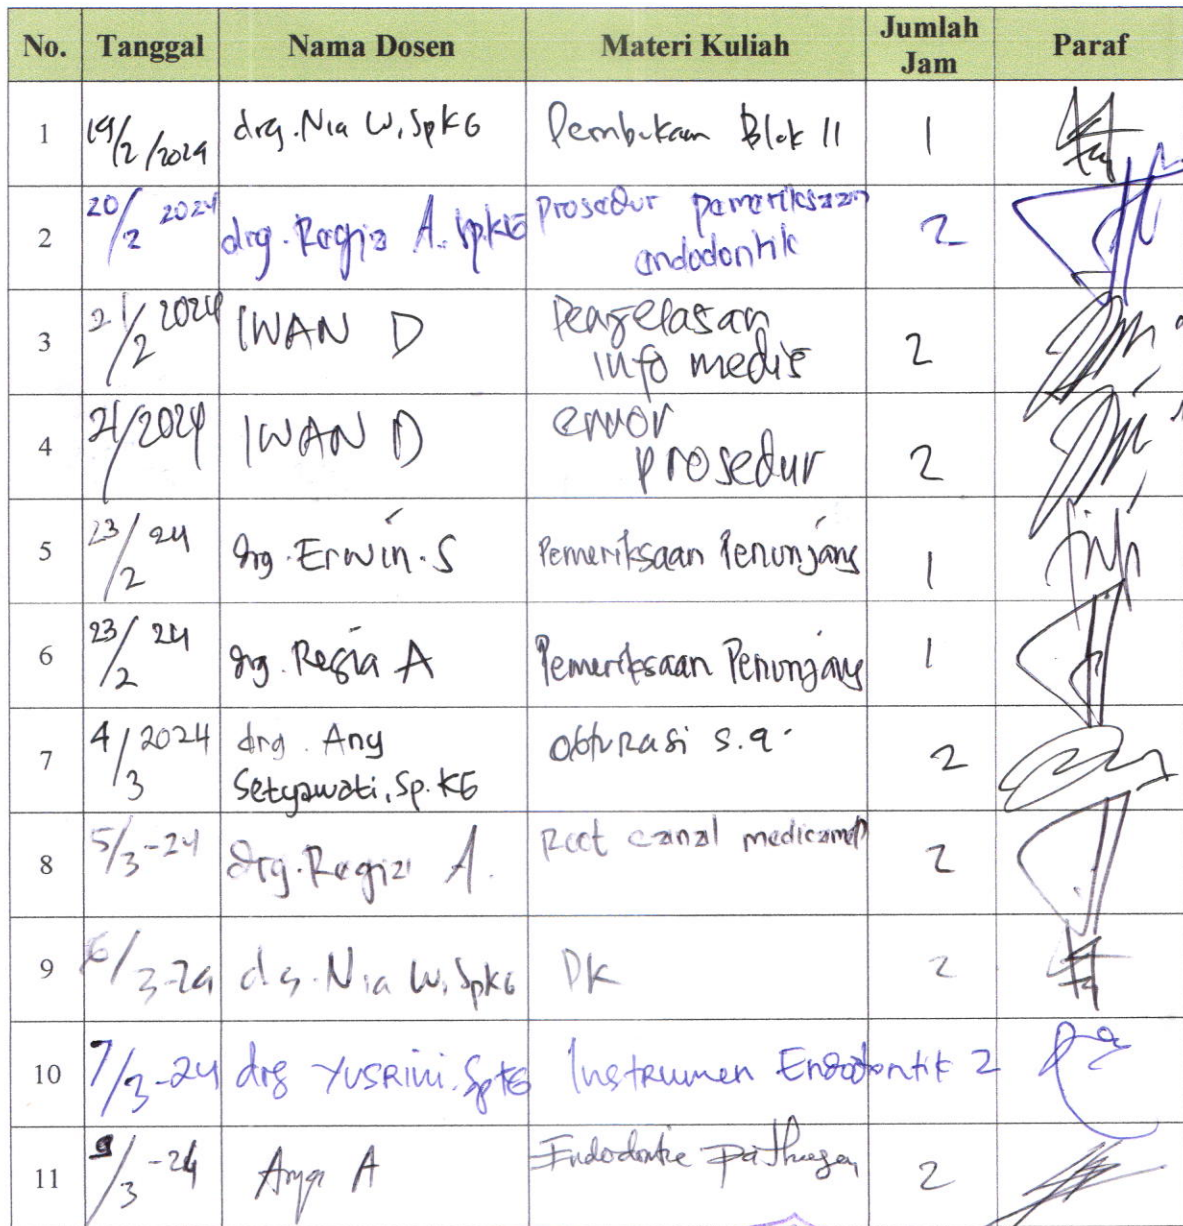 No. Tanggal Nama Dosen Materi Kuliah Jumlah Jam Paraf
1 19/2/2024 drg. Nia W, SpKG Pembukaan Blok 11 1
2 20/2 2024 drg. Regia A. SpKG Prosedur pemeriksaan endodontik 2
3 21/2 2024 IWAN D Penjelasan info medis 2
4 21/2024 IWAN D error prosedur 2
5 23/2 24 drg. Erwin. S Pemeriksaan Penunjang 1
6 23/2 24 drg. Regia A Pemeriksaan Penunjang 1
7 4/3 2024 drg. Any Setyawati, Sp. KG obturasi s.a. 2
8 5/3-24 drg. Regia A. Root canal medicament 2
9 6/3-24 drg. Nia W, SpKG DK 2
10 7/3-24 drg YUSRINI. SpKG Instrumen Endodontik 2
11 /3-24 A Endodontic 2